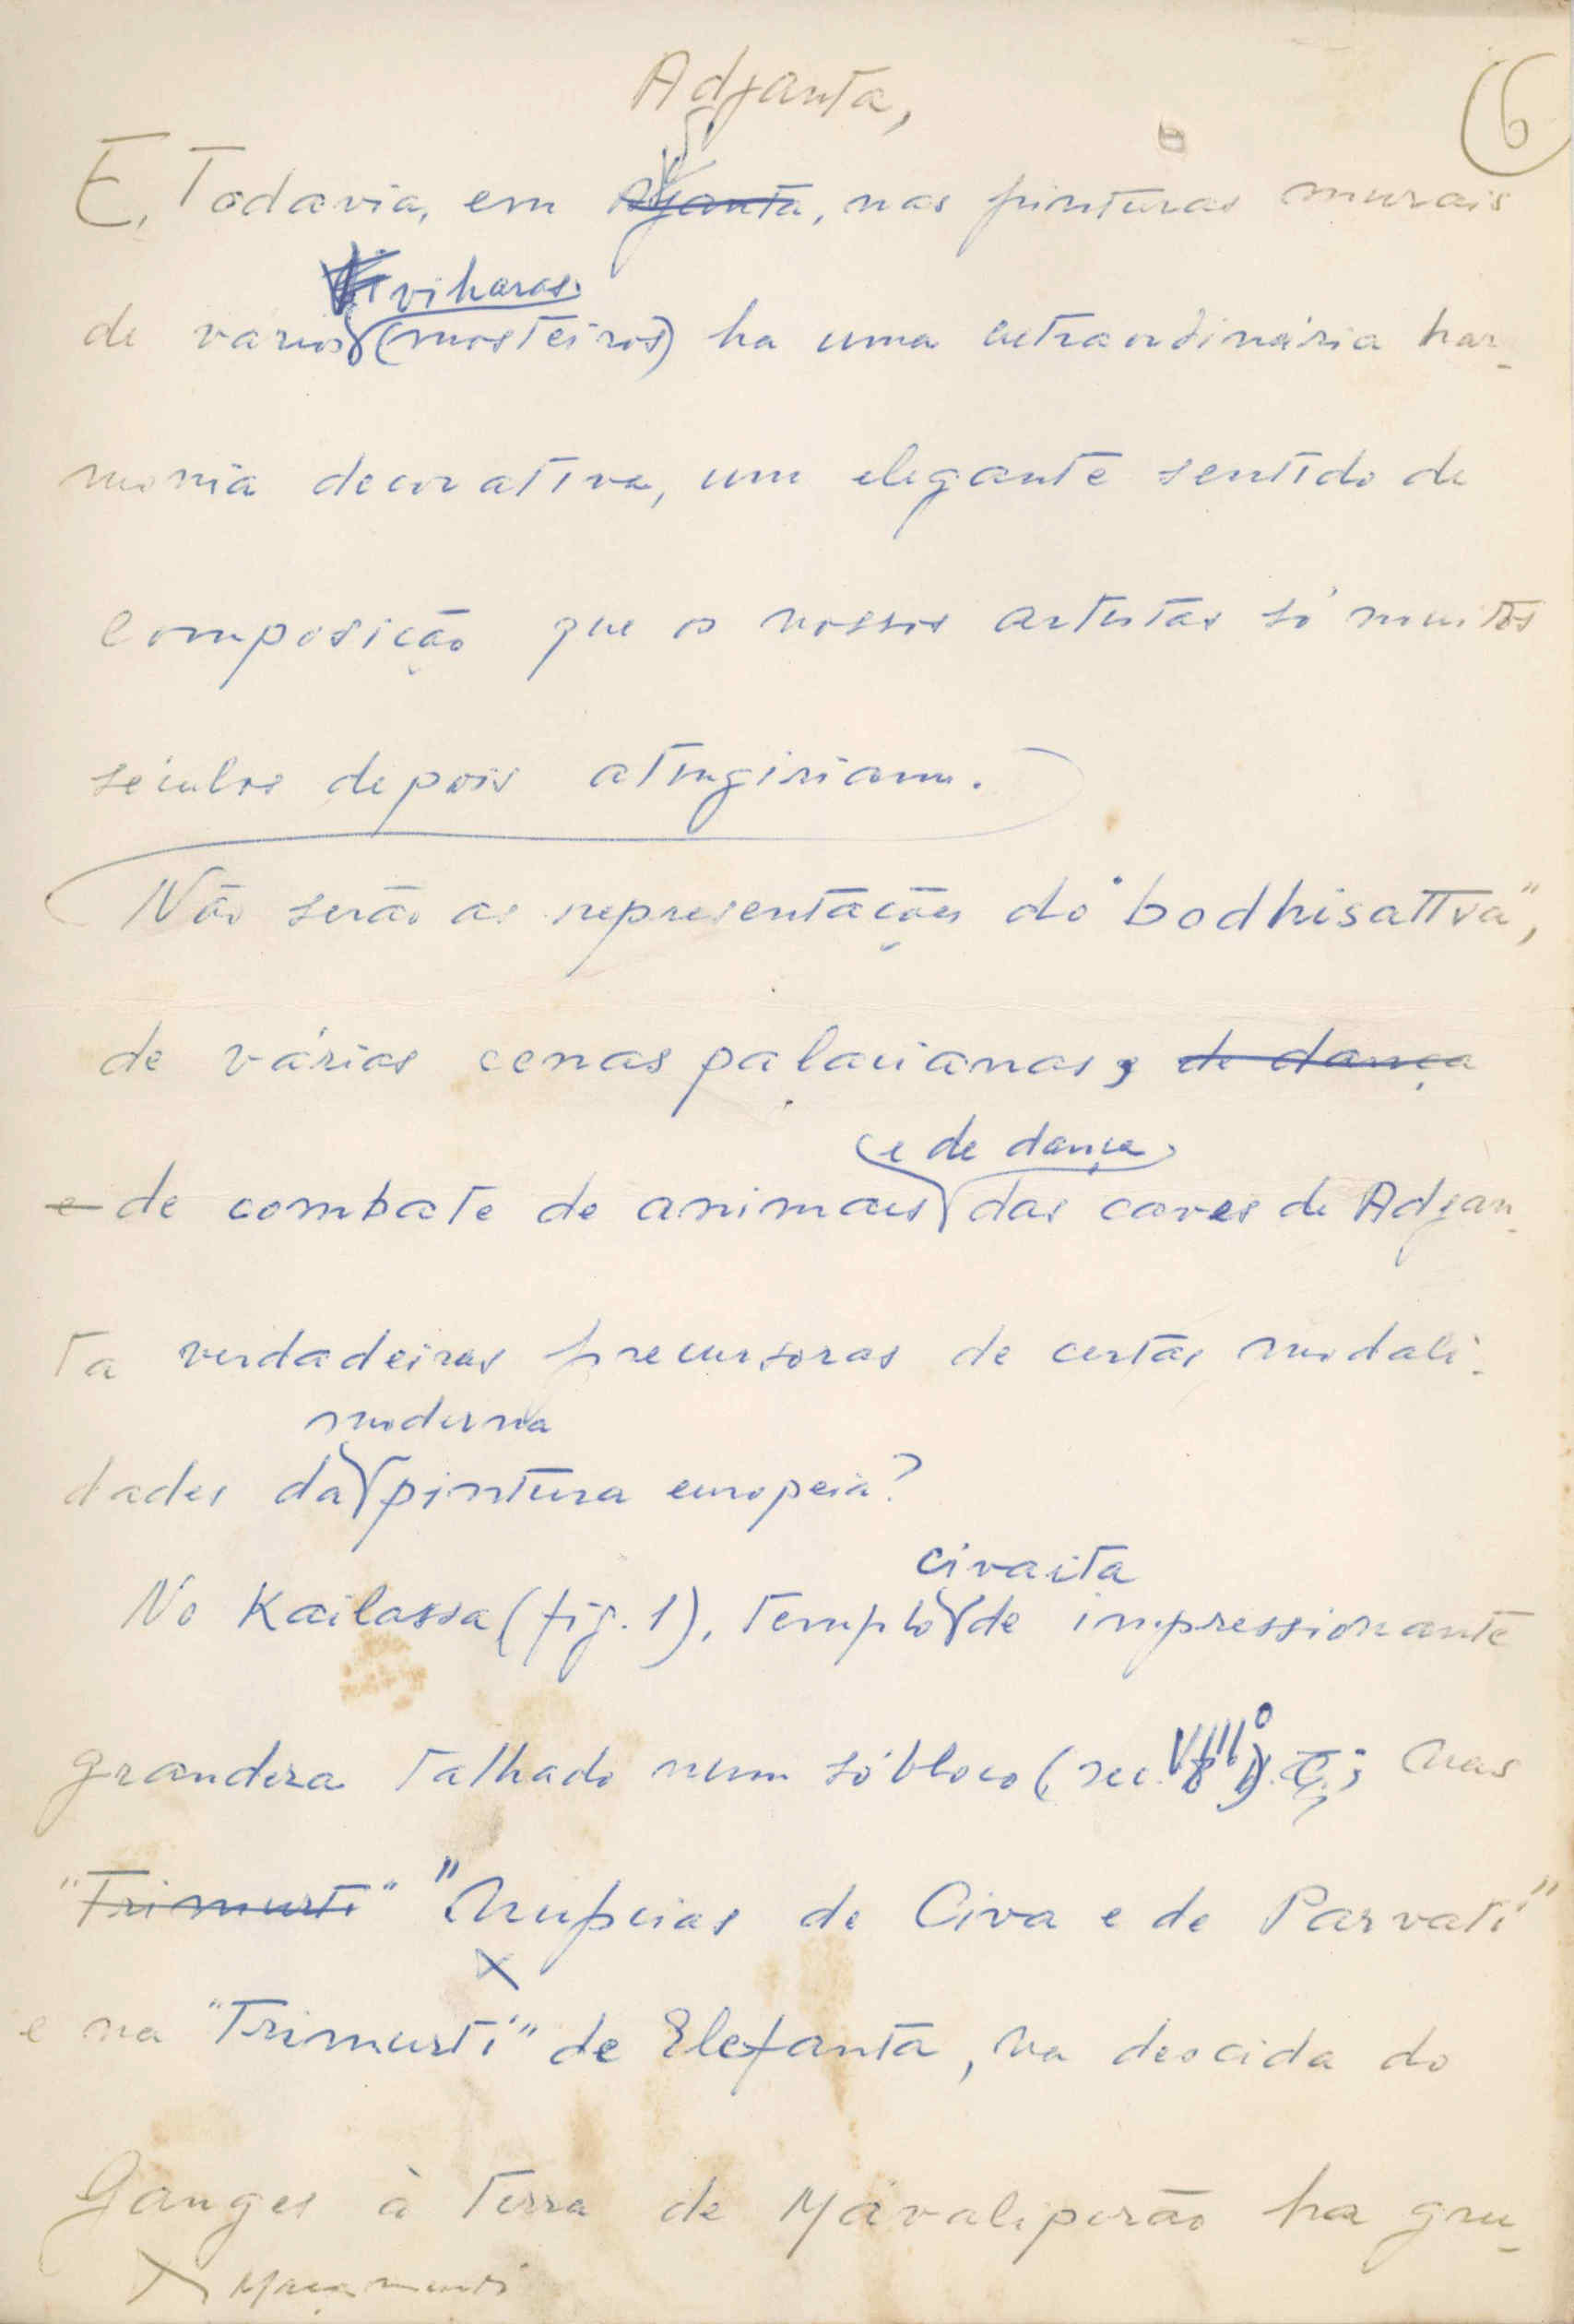 6
Adjanta,
E, Todavia, em Ajanta, nas pinturas murais
viharas
de varios (mosteiros) ha uma extraordinária har-
monia decorativa, um elegante sentido de
composição que os nossos artistas só muitos
séculos depois atingiriam.
Não serão as representações do "bodhisattva",
de várias cenas palacianas, de dança
e de dança
e de combate de animais das caves de Adjan-
ta verdadeiras precursoras de certas modali-
moderna
dades da pintura europeia?
civaita
No Kailassa (fig. 1), templo de impressionante
grandeza talhado num só bloco (sec. VIIIº); nas
"Trimurti" "Nupcias de Civa e de Parvati"
x
e na "Trimurti" de Elefanta, na descida do
Ganges à Terra de Mavaliporão ha gru-